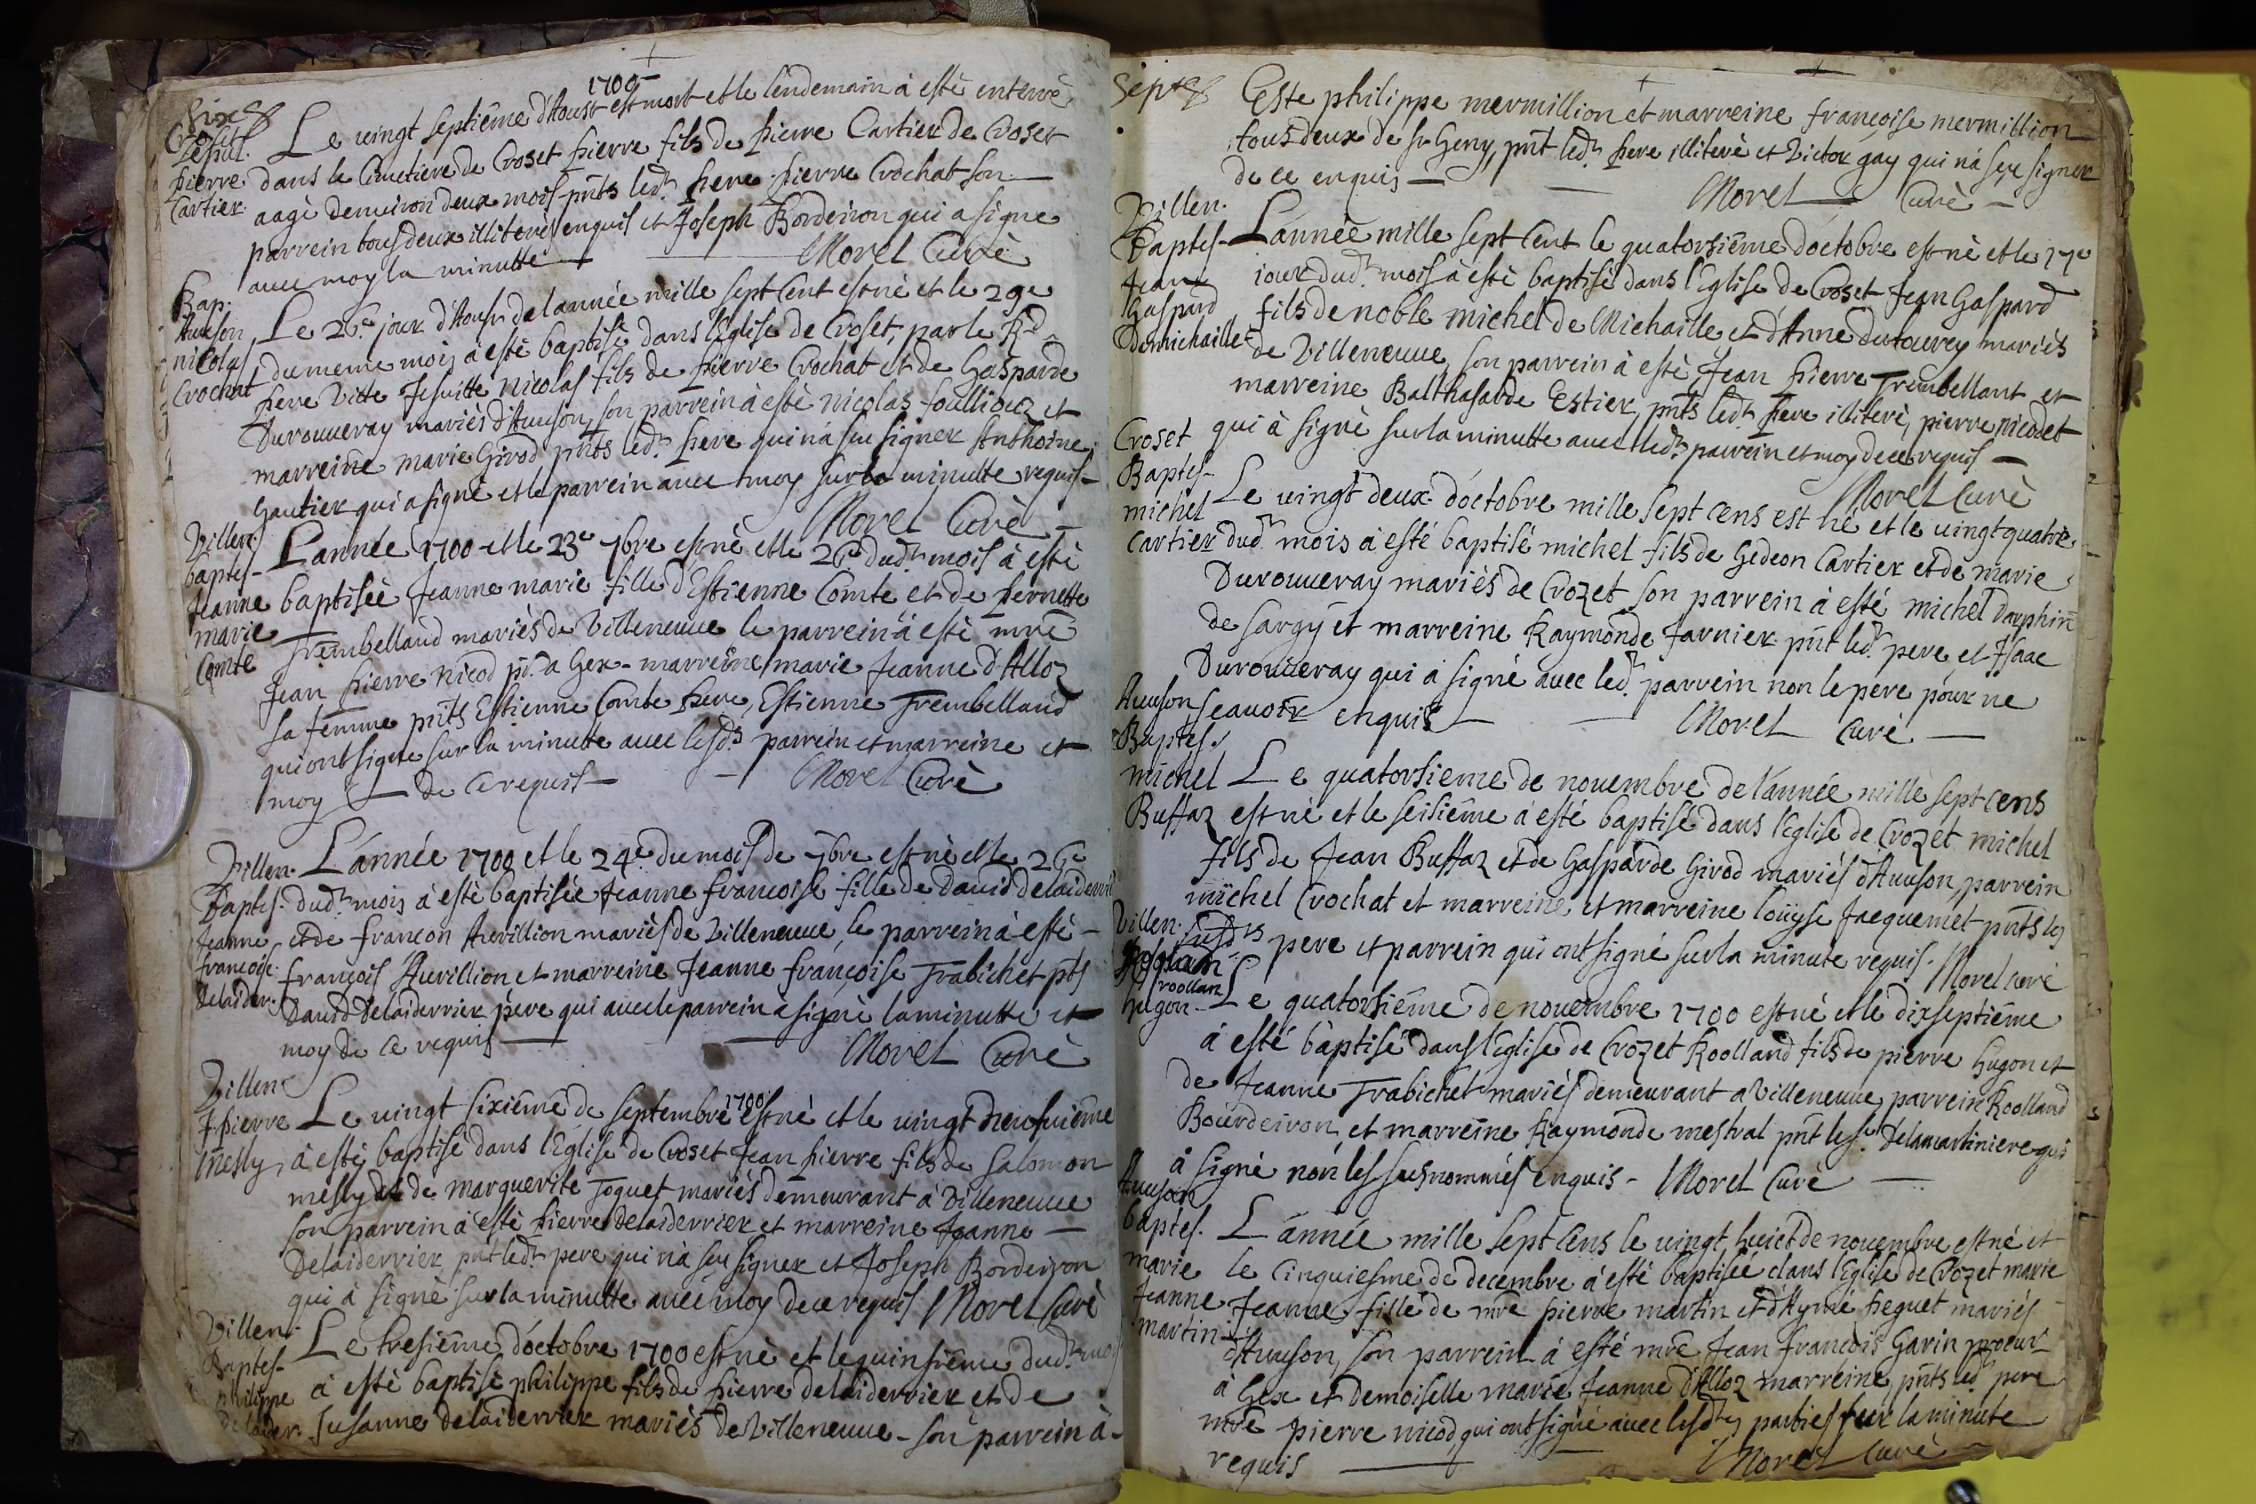 1700
Six
Croset
Sepul.
pierre
Cartier
Le vingt septiême d'Aoust est mort et le lendemain à esté enterré
dans le Cimetiere de Croset pierre fils de pierre Cartier de Croset
aagé d'environ deux mois pnts led.t pere pierre Crochat son
parrein tous deux illiterés enquis et Joseph Bordeiron qui a signe
avec moy la minutte Morel Curé
Bap.
Auuson
nicolas
Crochat
Le 26.e jour d'Aoust de l'année mille sept Cent est né et le 29e
du meme mois à esté baptisé dans l'Eglise de Croset, par le R.d
pere Vitte Jesuitte nicolas fils de pierre Crochat et de Gasparde
Durouueray mariés d'Auuson, son parrein à esté nicolas foullioux et
marreine marie Girod pnts led.t pere qui n'a sçu signer Anthoine
Gautier qui a signé et le parrein auec moy sur la minutte requis
Morel Curé
Villen.
baptes
Jeanne
marie
Comte
L'année 1700 et le 23e 7bre est né et le 26.e dud.t mois à esté
baptisée Jeanne marie fille d'Estienne Comte et de pernette
Trembelland mariés de Villeneuue le parrein à esté mre
Jean pierre nicod pr. a Gex - marreine marie Jeanne d'Alloz
sa femme pnts Estienne Comte pere, Estienne Trembelland
qui ont signé sur la minutte auec lesd.ts parrein et marreine et
moy de ce requis Morel Curé
Villen.
Baptes.
Jeanne
francoise
Delaider.
L'année 1700 et le 24e du mois de 7bre est né et le 26e
dud.t mois à esté baptisée Jeanne francoise fille de Dauid delaiderrier
et de francon Auvillion mariés de Villeneuue, le parrein à esté
françois Auvillion et marreine Jeanne françoise Trabichet pts
Dauid Delaiderrier pere qui auec le parrein à signé la minutte et
moy de ce requis Morel Curé
Villen
J. pierre
Mesly
Le vingt sixiême de septembre 1700 est né et le vingt neufuième
à esté baptisé dans l'Eglise de Croset Jean pierre fils de Salomon
mesly et de marguerite Joguet mariés demeurant à Villeneuue
son parrein à esté pierre delaiderrier et marreine Jeanne
Delaiderrier, pnt led.t pere qui n'a sçu signer et Joseph Bordeiron
qui à signé sur la minutte auec moy de ce requis Morel Curé
Villen.
Baptes
philippe
delaider.
Le tresiême d'octobre 1700 est né et le quinsiême dud.t mois
à esté baptisé philippe fils de pierre delaiderrier et de
Susanne delaiderrier mariés de Villeneuue - son parrein à
Sept
Este philippe mermillion et marreine françoise mermillion
tous deux de st Geny, pnt led.t pere illiteré et Victor gay qui n'a sçu signer
de ce enquis Morel Curé
Villen.
Baptes
Jean
Gaspard
Demichaille
L'année mille sept Cent le quatorsiême d'octobre est né et le 17e
iour dud.t mois à esté baptisé dans l'Eglise de Croset Jean Gaspard
fils de noble michel de Michaille et d'Anne dutouvey mariés
de Villeneuue, son parrein à esté Jean pierre Trembellant et
marreine Balthasarde Estier, pnts led.t pere illiteré, pierre nicodet
qui à signé sur la minutte auec led.t parrein et moy de ce requis
Morel Curé
Croset
Baptes
michel
Cartier
Le vingt deux d'octobre mille sept cens est né et le vingt quatre
dud.t mois à esté baptisé michel fils de Gedeon Cartier et de marie
Durouueray mariés de Crozet son parrein à esté michel dauphin
de Sargy et marreine Raymonde Jarnier pnt led.t pere et Isaac
Durouueray qui à signé auec led.t parrein non le pere pour ne
scauoir enquis Morel Curé
Auuson
Baptes.
michel
Buffaz
Le quatorsieme de nouembre de l'année mille sept cens
est né et le seisiême à esté baptisé dans l'Eglise de Crozet michel
fils de Jean Buffaz et de Gasparde Girod mariés d'Auuson, parrein
michel Crochat et marreine et marreine loüyse Jacquemet pnts les
susd.ts pere et parrein qui ont signé sur la minute requis. Morel curé
Villen.
roollan
hugon
Le quatorsiême de nouembre 1700 est né et le dixseptiême
à esté baptisé dans l'Eglise de Crozet Roolland fils de pierre Hugon et
de Jeanne Trabichet mariés demeurant a Villeneuue, parrein Roolland
Bourdeiron et marreine Raymonde mestral pnt le sr. Delamartiniere qui
à signé non les susnommés enquis - Morel Curé
Auuson
baptes.
marie
Jeanne
martin
L'année mille sept cens le vingt huict de nouembre est né et
le cinquiesme de decembre à esté baptisée dans l'Eglise de Crozet marie
Jeanne fille de mre pierre martin et d'Aymé peguet mariés
d'Auuson, son parrein à esté mre Jean françois Garin procur
à Gex et demoiselle marie Jeanne d'Alloz marreine, pnts led.t pere
mre pierre nicod, qui ont signé auec lesd.tes parties sur la minute
requis Morel curé